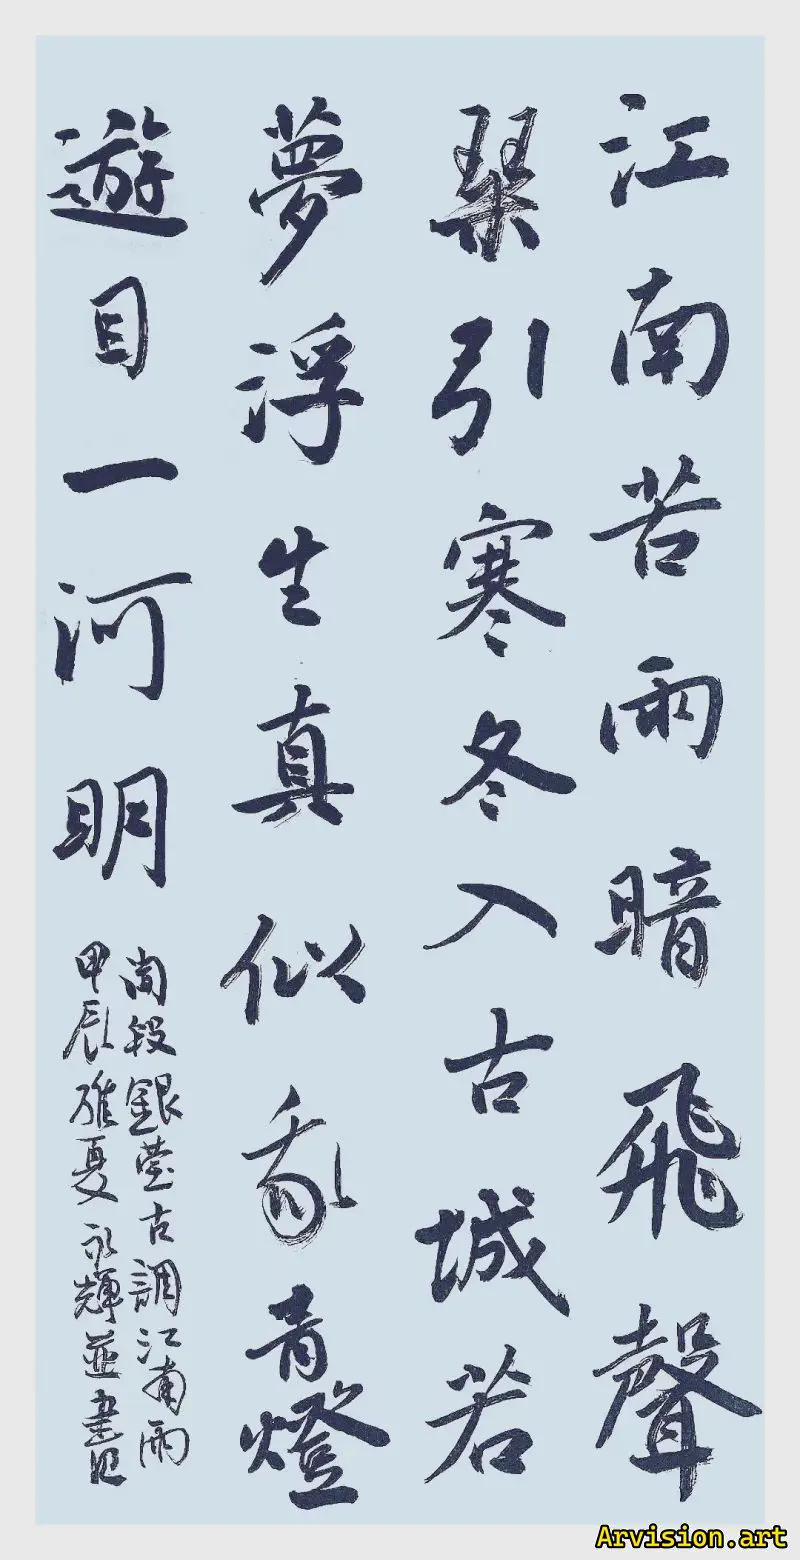 江南苦雨暗飛聲
琹引寒冬入古城若
夢浮生真似亂青燈
遊目一河明
銀臺古調江南雨
甲辰夏永輝並書
Arvision.art